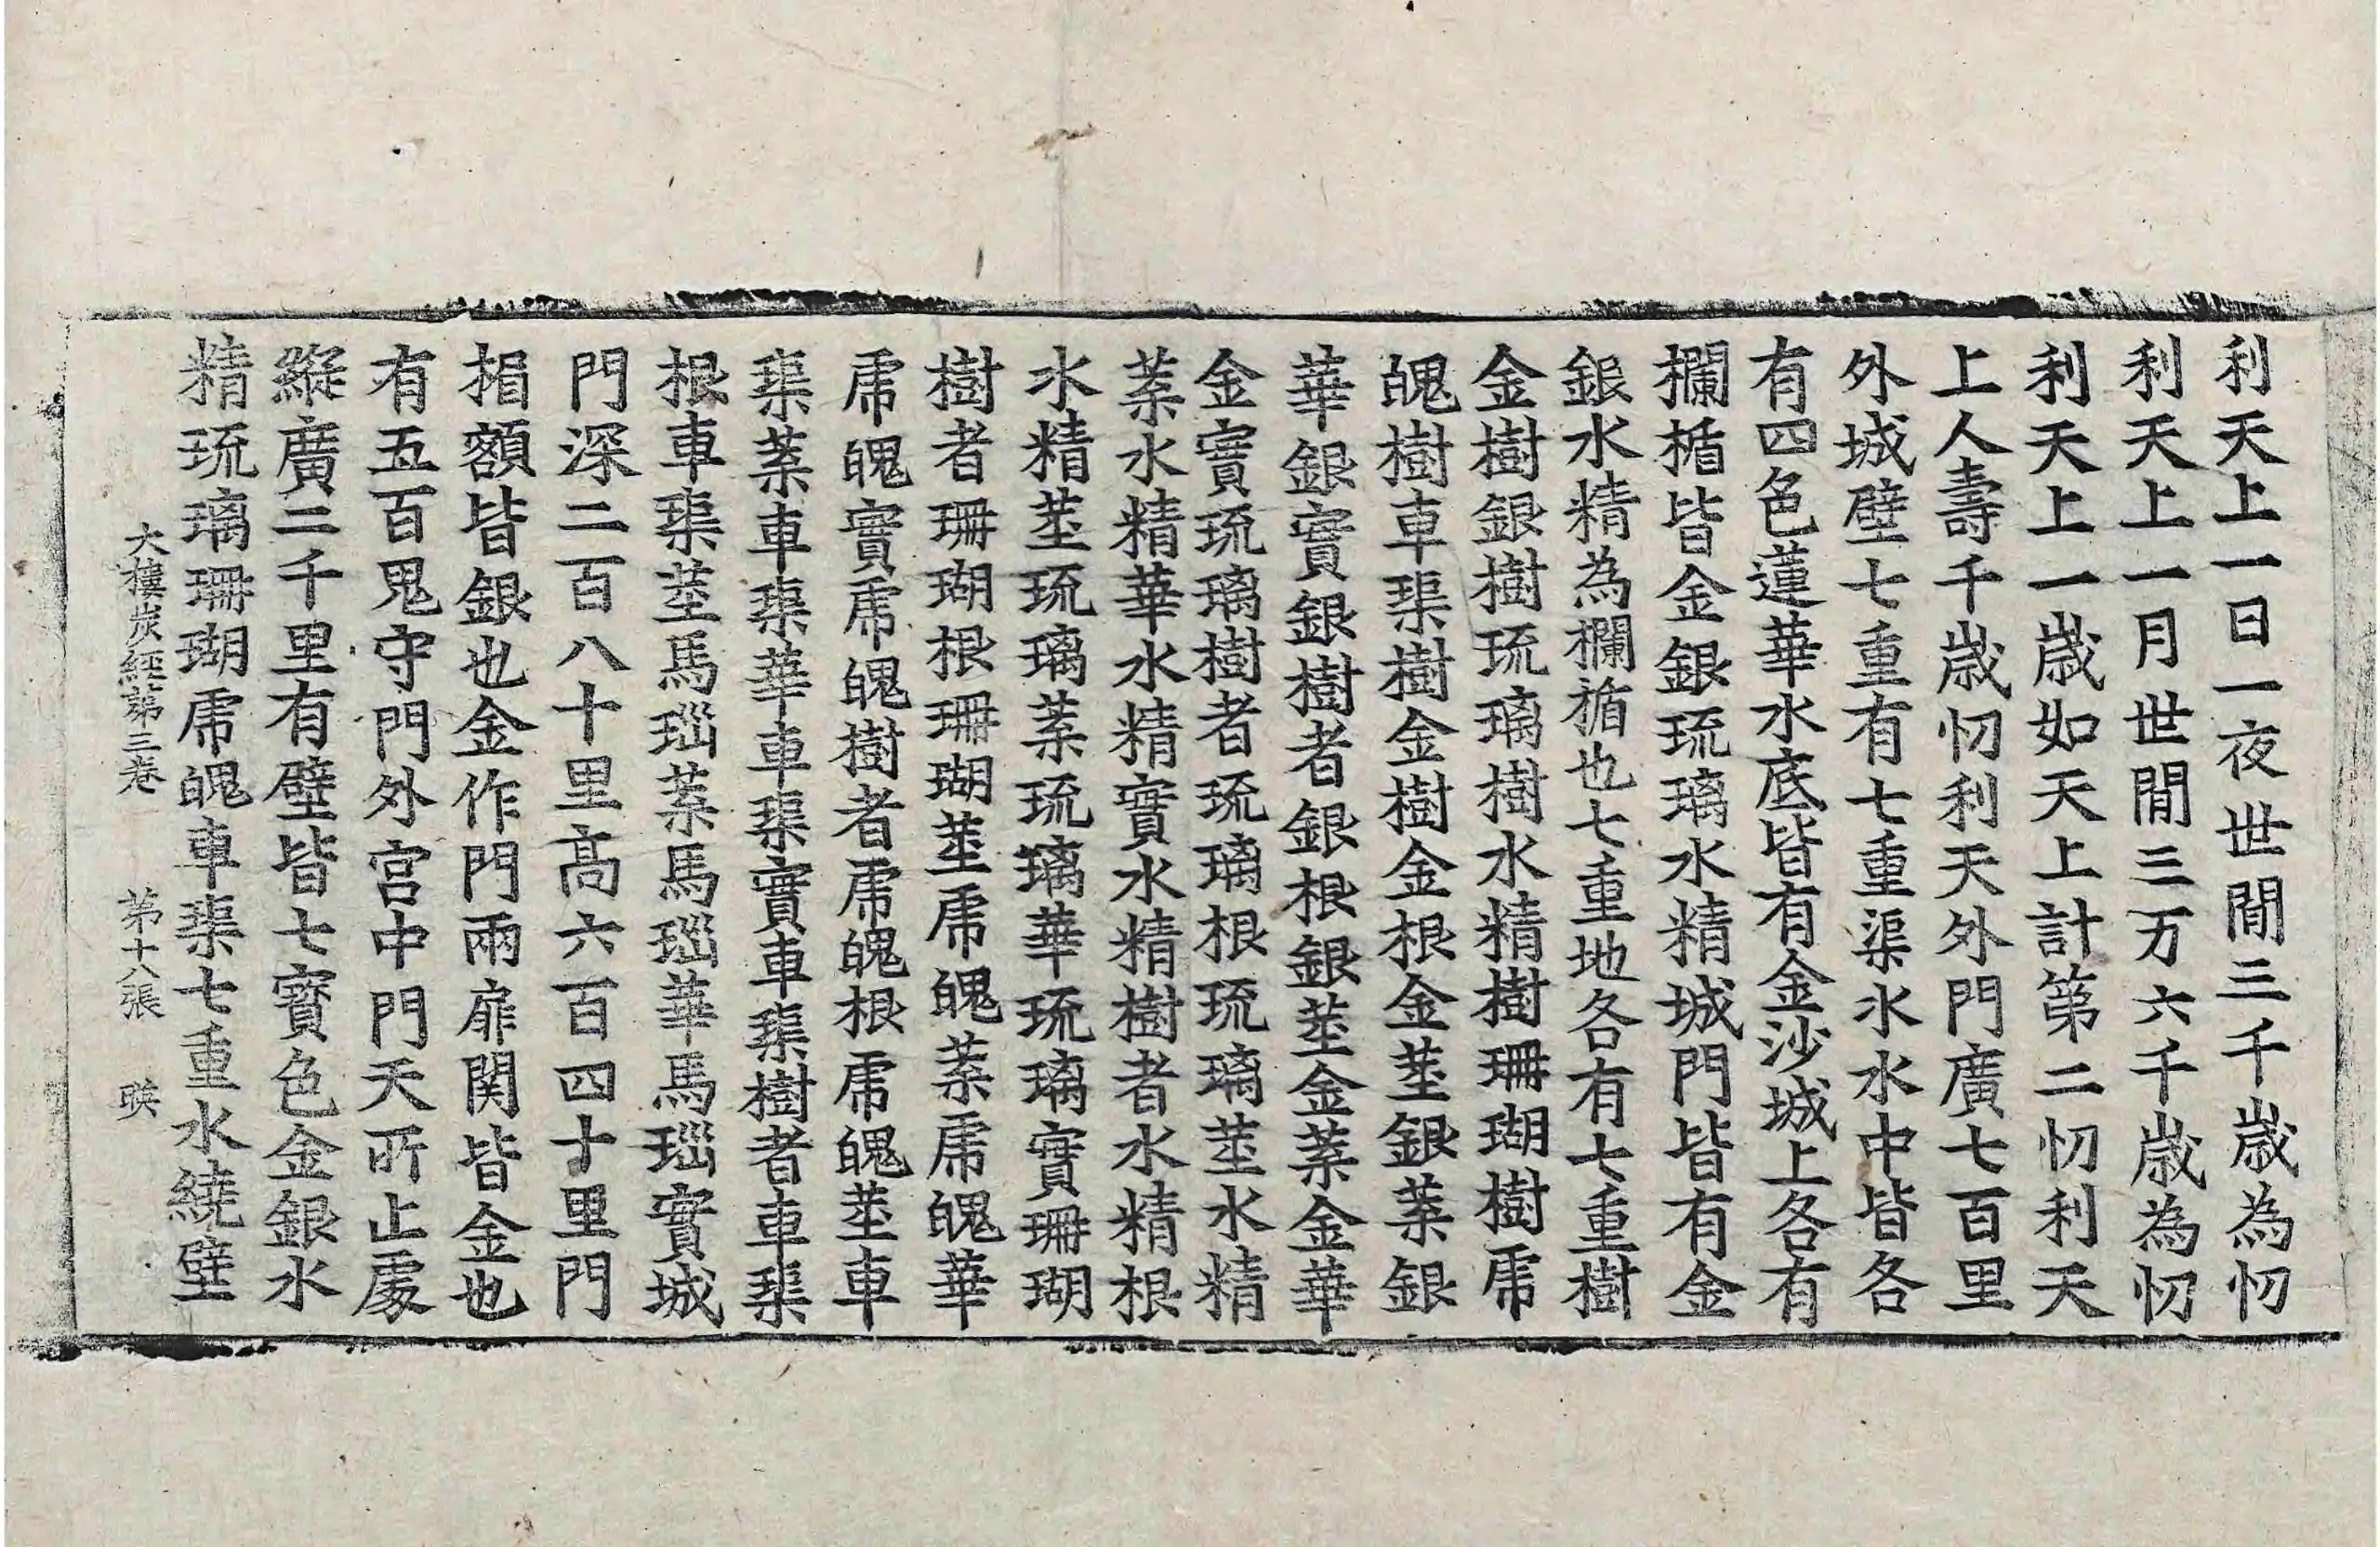 利天上一日一夜世間三千歲為忉
利天上一月世間三万六千歲為忉
利天上一歲如天上計第二忉利天
上人壽千歲忉利天外門廣七百里
外城壁七重有七重渠水水中皆各
有四色蓮華水底皆有金沙城上各有
欄楯皆金銀琉璃水精城門皆有金
銀水精為欄楯也七重地各有七重樹
金樹銀樹琉璃樹水精樹珊瑚樹虎
魄樹車𤦲樹金樹金根金莖銀葉銀
華銀實銀樹者銀根銀莖金葉金華
金實琉璃樹者琉璃根琉璃莖水精
葉水精華水精實水精樹者水精根
水精莖琉璃葉琉璃華琉璃實珊瑚
樹者珊瑚根珊瑚莖虎魄葉虎魄華
虎魄實虎魄樹者虎魄根虎魄莖車
𤦲葉車𤦲華車𤦲實車𤦲樹者車𤦲
根車𤦲莖馬瑙葉馬瑙華馬瑙實城
門深二百八十里高六百四十里門
楣額皆銀也金作門兩扉関皆金也
有五百鬼守門外宮中門天所止處
縱廣二千里有壁皆七寶色金銀水
精琉璃珊瑚虎魄車𤦲七重水繞壁
大樓炭經第三卷 第十八張 暎